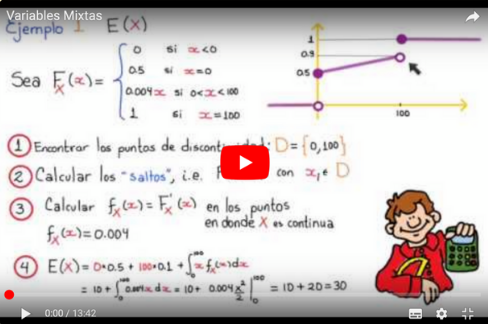 Variables Mixtas
Ejemplo 1 E(X)
Sea F_X(x)=
0 si x<0
0.5 si x=0
0.004x si 0<x<100
1 si x=100
1
0.9
0.5
100
① Encontrar los puntos de D={0,100}
② Calcular los "saltos", i.e. con x₁∈D
③ Calcular f_X(x)=F'_X(x) en los puntos
en donde X es continua
f_X(x)=0.004
④ E(X)=0•0.5+100•0.1+∫₀¹⁰⁰ x f_X(x)dx
=10+∫₀¹⁰⁰ 0.004x dx=10+ 0.004 x²/2 |₀¹⁰⁰ =10+20=30
0:00 / 13:42